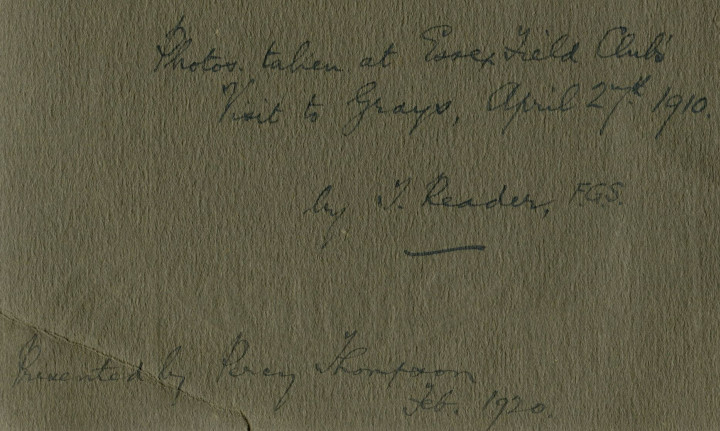 Photos. taken at Essex Field Club's
Visit to Grays, April 27th 1910.
by T. Reader, F.G.S.
Presented by Percy Thompson
Feb. 1920.